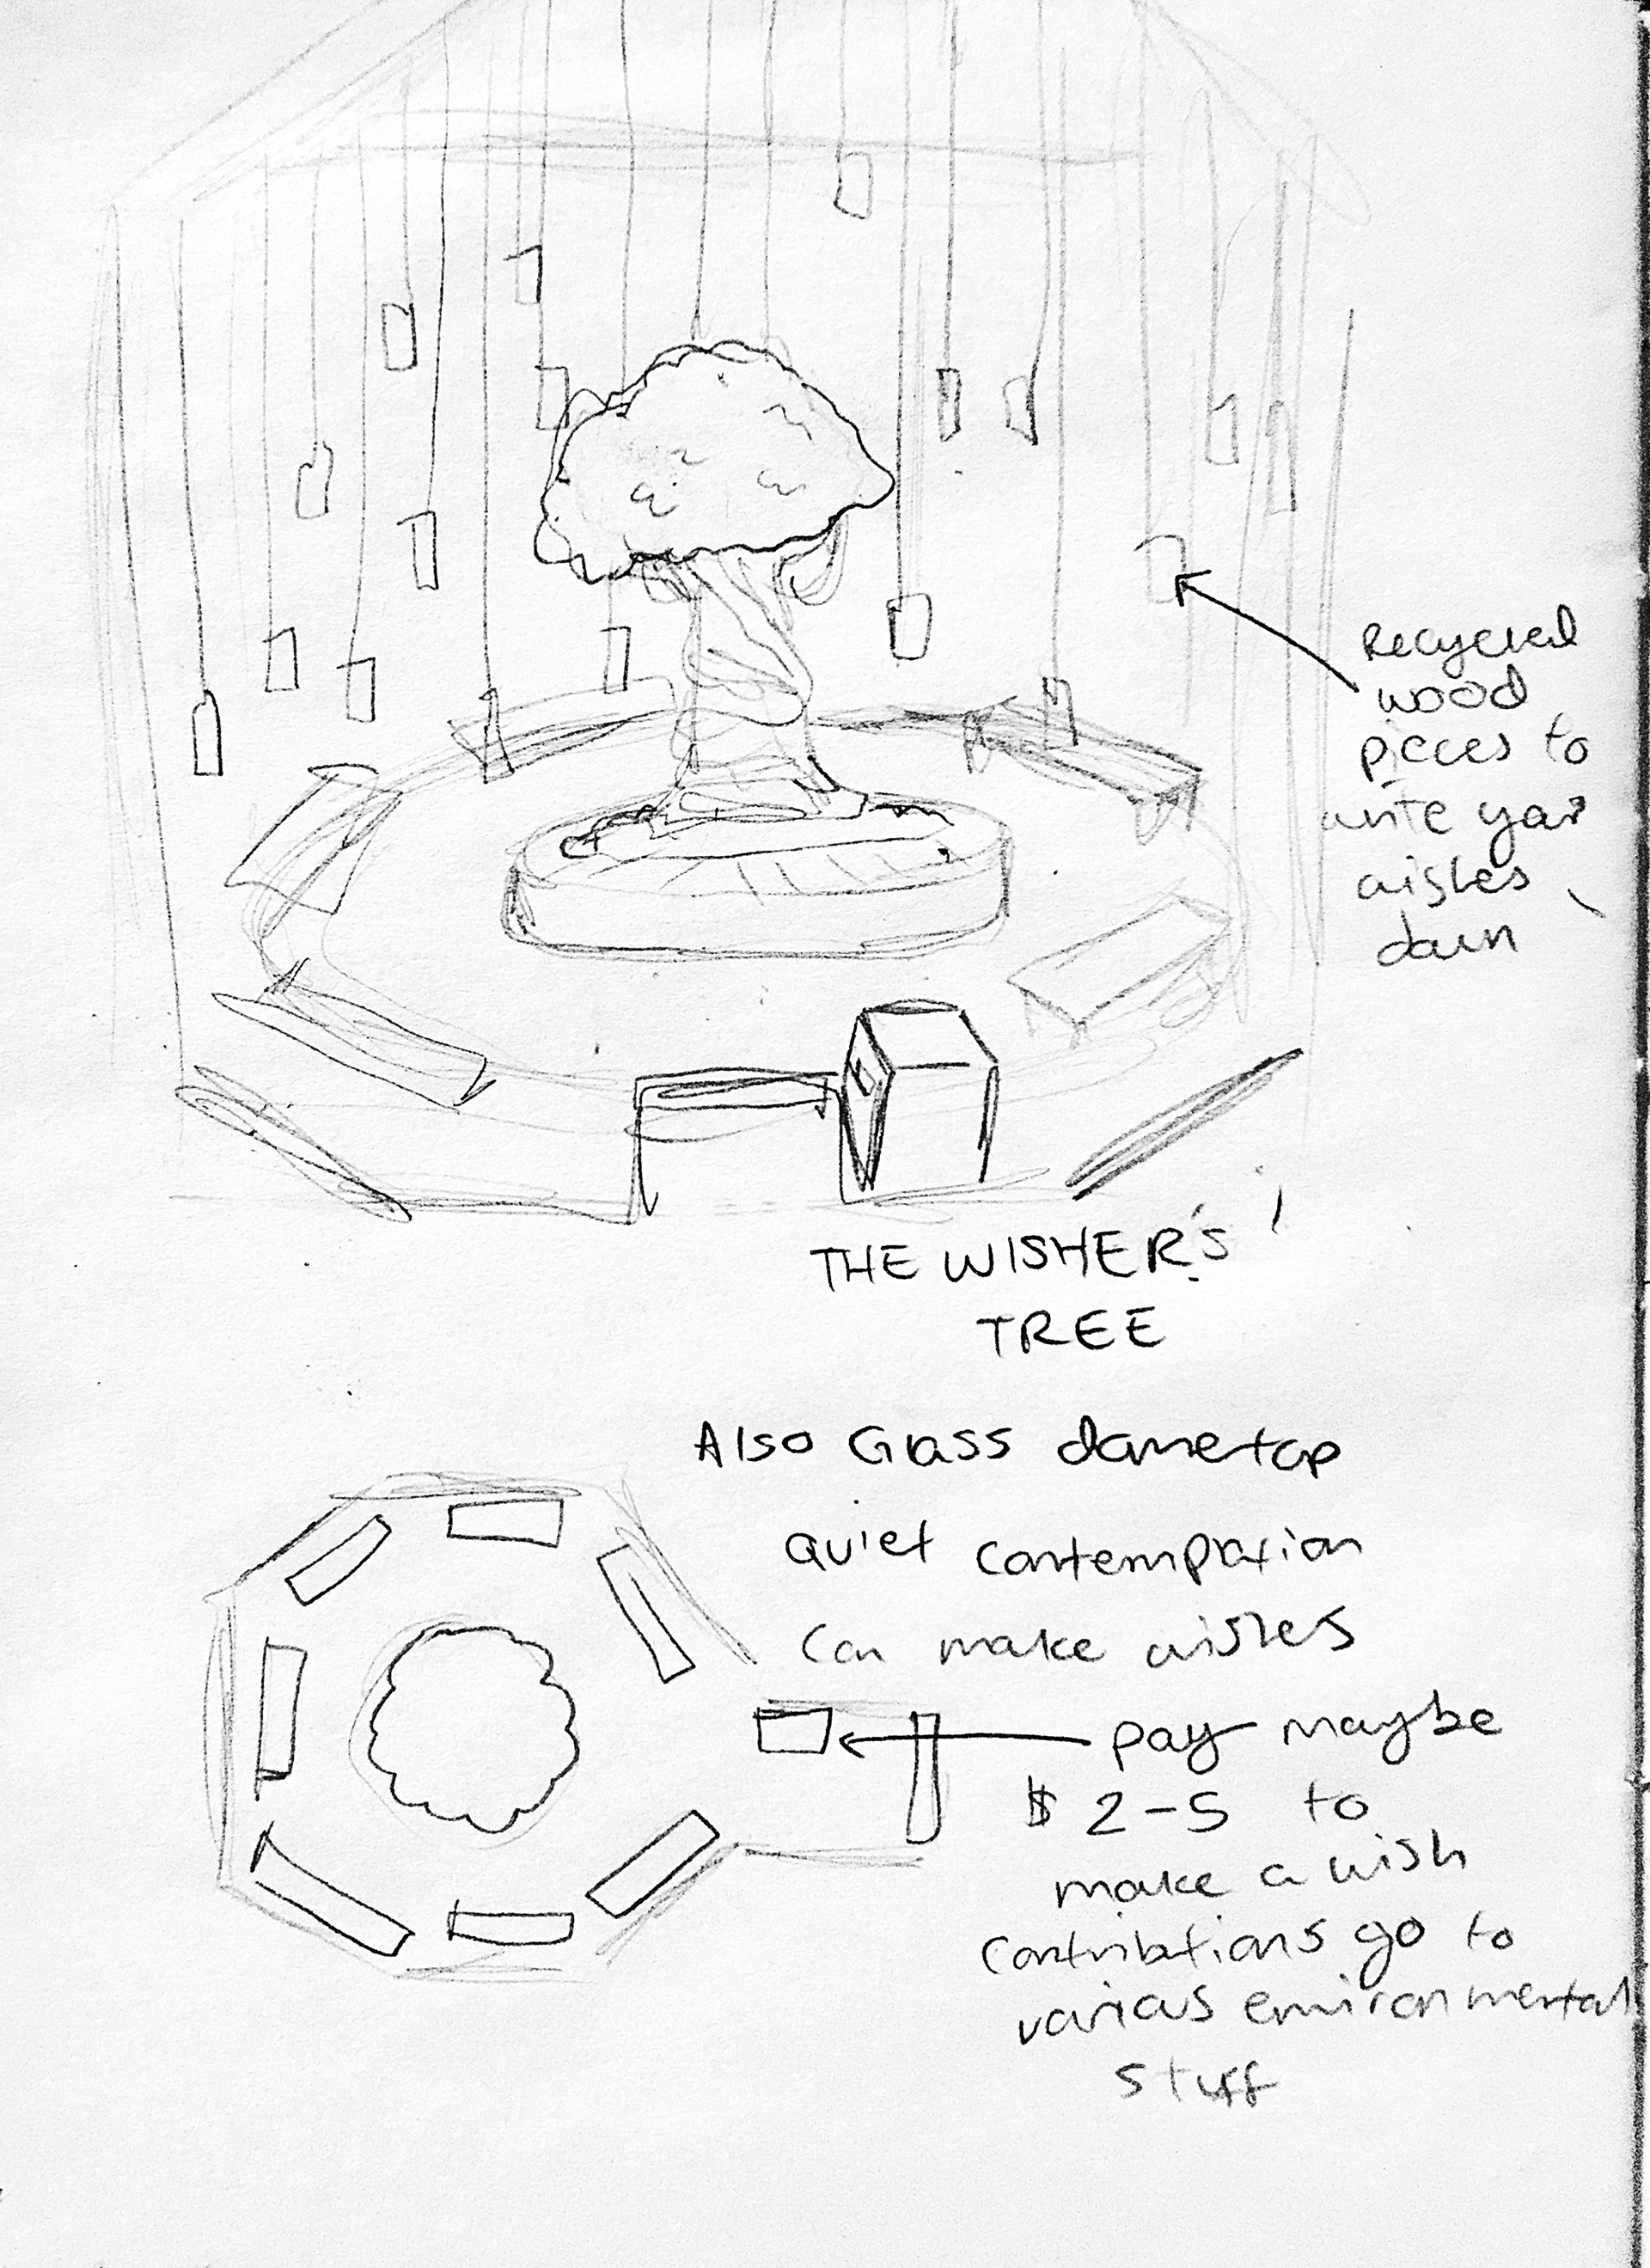 Recycled
wood
pieces to
write your
wishes
down
THE WISHER'S
TREE
Also Glass dometop
quiet contemplation
Can make wishes
pay maybe
$ 2-5 to
make a wish
contributions go to
various environmental
stuff